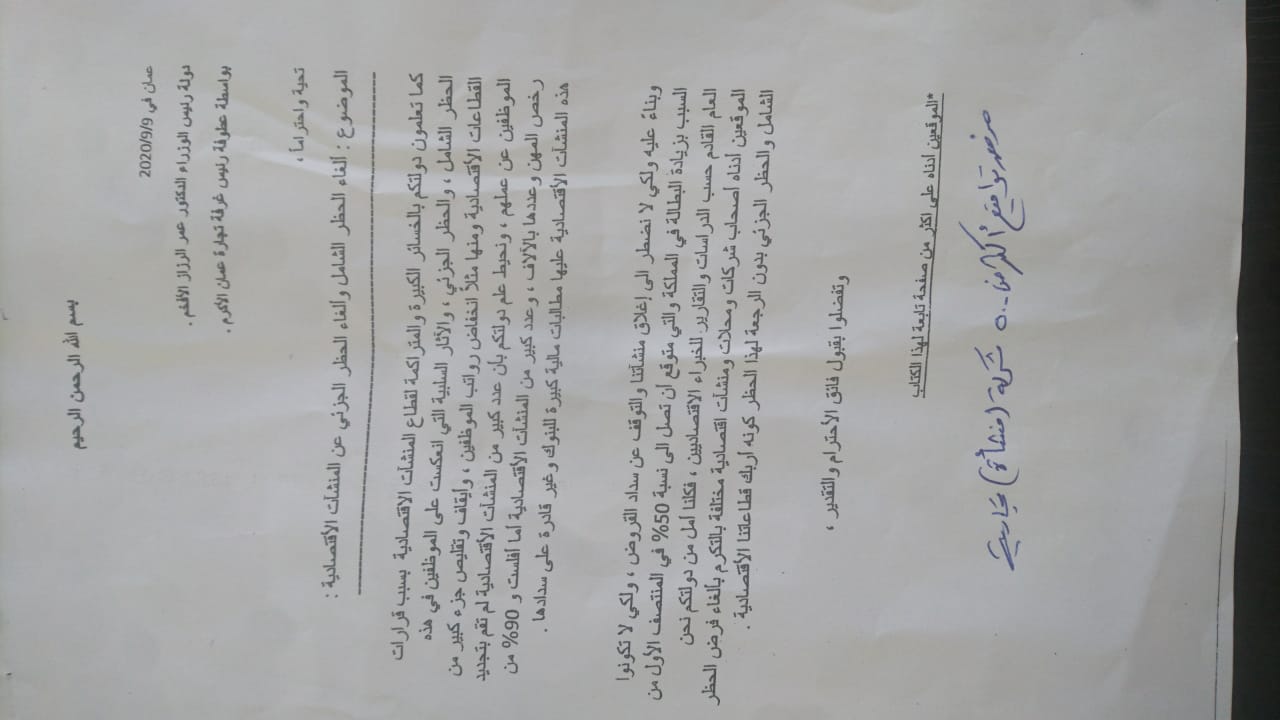 بسم الله الرحمن الرحيم
عمان في 2020/9/9
دولة رئيس الوزراء الدكتور عمر الرزاز الأفخم .
بواسطة عطوفة رئيس غرفة تجارة عمان الأكرم .
تحية واحتراماً ،
الموضوع : الغاء الحظر الشامل والغاء الحظر الجزئي عن المنشآت الأقتصادية :
كما تعلمون دولتكم بالخسائر الكبيرة والمتراكمة لقطاع المنشآت الاقتصادية بسبب قرارات
الحظر الشامل ، والحظر الجزئي ، والأثار السلبية التي انعكست على الموظفين في هذه
القطاعات الأقتصادية ومنها مثلاً انخفاض رواتب الموظفين ، وأيقاف وتقليص جزء كبير من
الموظفين عن عملهم ، ونحيط علم دولتكم بان عدد كبير من المنشآت الأقتصادية لم تقم بتجديد
رخص المهن وعددها بالألاف ، وعدد كبير من المنشآت الأقتصادية أما أفلست و 90% من
هذه المنشآت الأقتصادية عليها مطالبات مالية كبيرة للبنوك وغير قادرة على سدادها .
وبناءً عليه ولكي لا نضطر الى إغلاق منشآتنا والتوقف عن سداد القروض ، ولكي لا تكونوا
السبب بزيادة البطالة في المملكة والتي متوقع ان تصل الى نسبة 50% في المنتصف الأول من
العام القادم حسب الدراسات والتقارير للخبراء الاقتصاديين ، فكلنا أمل من دولتكم نحن
الموقعين أدناه أصحاب شركات ومحلات ومنشآت اقتصادية مختلفة بالتكرم بألغاء فرض الحظر
الشامل والحظر الجزئي بدون الرجعة لهذا الحظر كونه أربك قطاعاتنا الأقتصادية .
وتفضلوا بقبول فائق الأحترام والتقدير ،
*الموقعين ادناه على اكثر من صفحة تابعة لهذا الكتاب
تواقيع أكثر من ٥٠٠ شركة (منشأة) تجارية